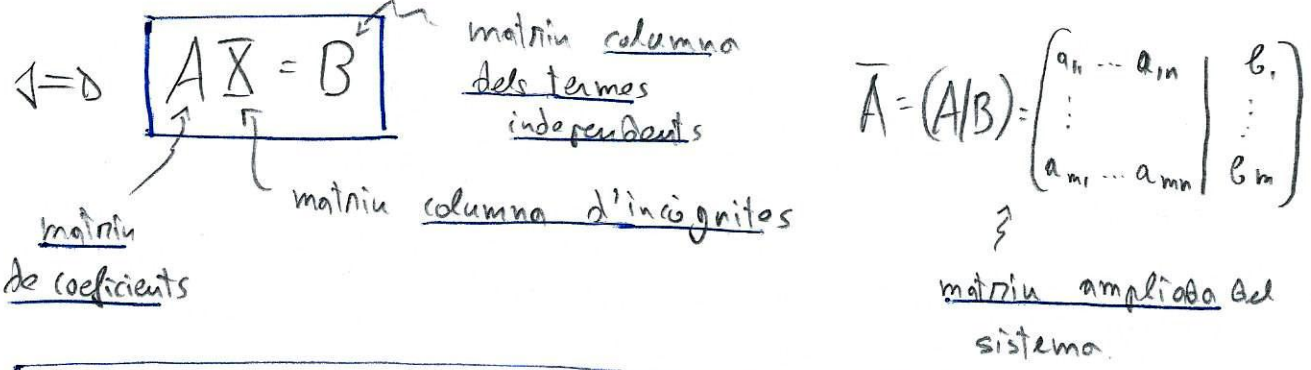 ⇐⇒ A X̄ = B
matriu columna
dels termes
independents
matriu columna d'incògnites
matriu
de coeficients
Ā = (A/B) = ( a₁₁ ... a₁ₙ | b₁
⋮ ⋮
aₘ₁ ... aₘₙ | bₘ )
matriu ampliada del
sistema.